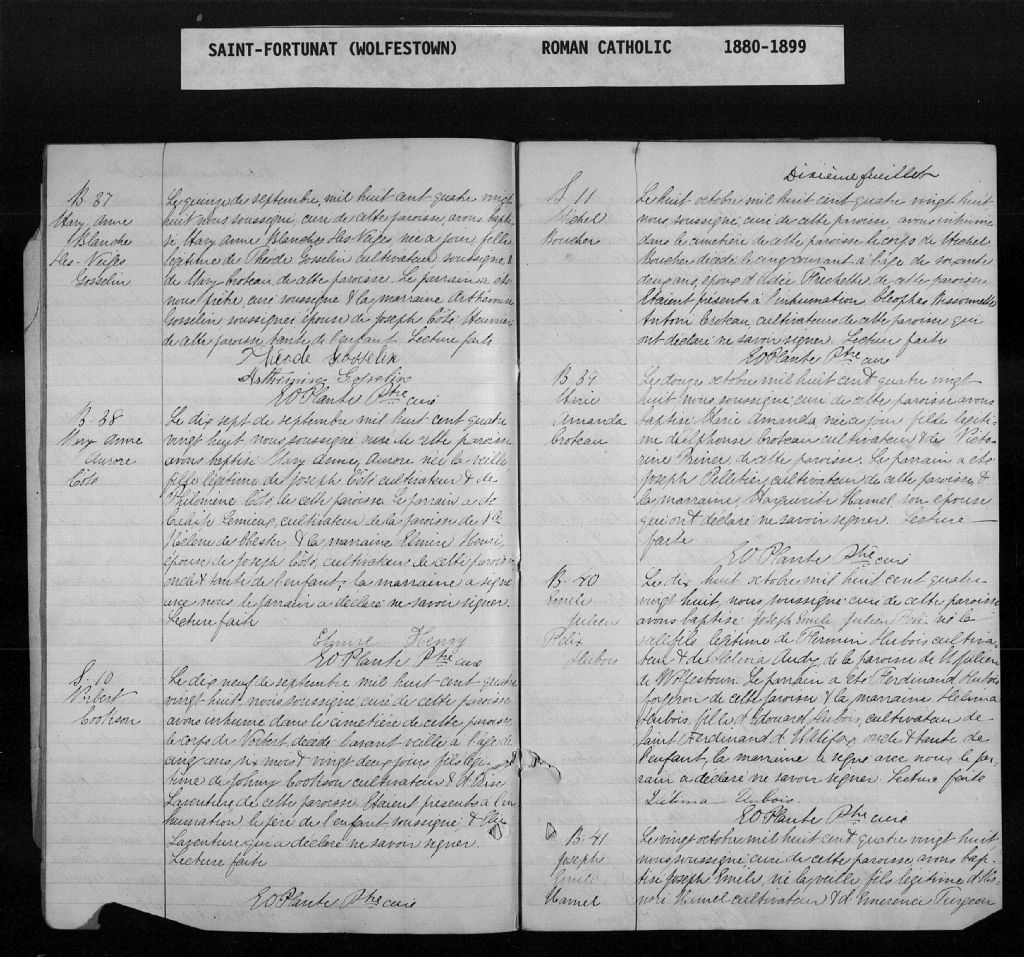 SAINT-FORTUNAT (WOLFESTOWN) ROMAN CATHOLIC 1880-1899
B. 37
Mary Anne
Blanche
des-Neiges
Gosselin
Le quinze de septembre, mil huit cent quatre vingt
huit nous soussigné, curé de cette paroisse, avons bapti-
sé, Mary Anne Blanche des-Neiges née a jour, fille
légitime de Théode Gosselin cultivateur soussigné &
de Mary Croteau de cette paroisse. Le parrain a été
nous prêtre curé soussigné & la marraine Arthémise
Gosselin soussignée épouse de Joseph Côté Meunier
de cette paroisse tante de l'enfant. Lecture faite
Théode Gosselin
Arthémise Gosselin
E O Plante Ptre curé
B. 38
Mary Anne
Aurore
Côté
Le dix sept de septembre mil huit cent quatre
vingt huit nous soussigné curé de cette paroisse
avons baptisé Mary Anne, Aurore née la veille
fille légitime de Joseph Côté cultivateur & de
Philomène Côté de cette paroisse. Le parrain a été
Lemieux, cultivateur de la paroisse de Ste
Hélène de Chester & la marraine Elmire Henri,
épouse de Joseph Côté, cultivateur de cette paroisse
oncle & tante de l'enfant, la marraine a signé
avec nous, le parrain a déclaré ne savoir signer.
Lecture faite
Elmire Henry
E O Plante Ptre curé
S. 10
Norbert
Cookson
Le dix neuf de septembre mil huit cent quatre
vingt huit, nous soussigné, curé de cette paroisse
avons inhumé dans le cimetière de cette paroisse
le corps de Norbert décédé l'avant veille à l'âge de
cinq ans, six mois & vingt deux jours fils légi-
time de Johny Cookson cultivateur &
Laventure de cette paroisse. Etaient présents à l'in
humation le père de l'enfant soussigné, &
Laventure qui a déclaré ne savoir signer.
Lecture faite
E O Plante Ptre curé
Dixième feuillet
S. 11
Michel
Boucher
Le huit octobre mil huit cent quatre vingt huit
nous, soussigné, curé de cette paroisse, avons inhumé
dans le cimetière de cette paroisse le corps de Michel
Boucher décédé le cinq courant à l'âge de soixante
deux ans, époux d' Frechette, de cette paroisse
Etaient présents à l'inhumation, Cléophas Bissonnette
Antoni Croteau, cultivateurs de cette paroisse qui
ont déclaré ne savoir signer. Lecture faite
E O Plante Ptre curé
B. 39
Marie
Amanda
Croteau
Le douze octobre mil huit cent quatre vingt
huit nous soussigné, curé de cette paroisse avons
baptisé Marie Amanda née a jour, fille légiti-
me d'Elphonse Croteau cultivateur & de Victo-
rine Prince, de cette paroisse. Le parrain a été
Joseph Pelletier, cultivateur de cette paroisse, &
la marraine, Marguerite Hamel son épouse
qui ont déclaré ne savoir signer. Lecture
faite
E O Plante Ptre curé
B. 40
Emile
Julien
Félix
Dubois
Le dix huit octobre mil huit cent quatre-
vingt huit, nous, soussigné curé de cette paroisse
avons baptisé Joseph Emile Julien Félix né la
veille fils légitime de Firmin Dubois cultiva-
teur & de Délina Audy, de la paroisse de St Julien
de Wolfestown. Le parrain a été Ferdinand Dubois
forgeron de cette paroisse & la marraine Délima
Dubois, fille d'Edouard Dubois, cultivateur de
Saint Ferdinand d'Halifax oncle & tante de
l'enfant, la marraine a signé avec nous le par-
rain a déclaré ne savoir signer. Lecture faite
Délima Dubois.
E O Plante Ptre curé
B. 41
Joseph
Emile
Hamel
Le vingt octobre mil huit cent quatre vingt huit
nous, soussigné, curé de cette paroisse, avons bap-
tisé Joseph Emile, né la veille fils légitime d'Ho-
noré Hamel cultivateur & d'Emérence Turgeon